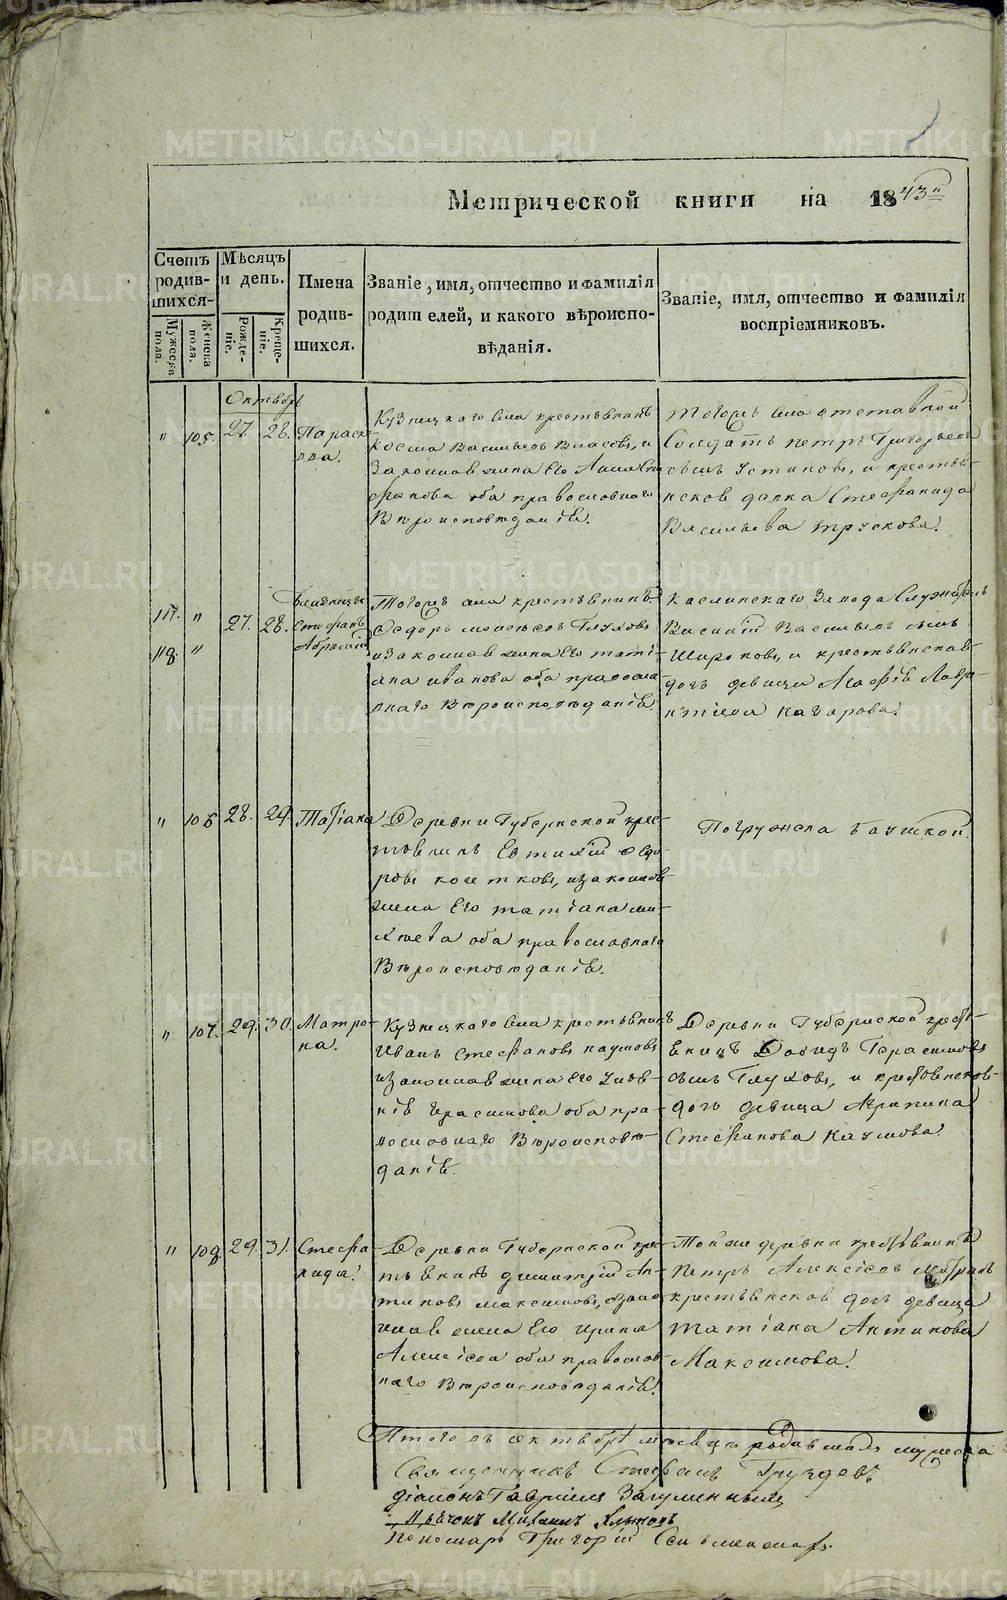 Метрической книги на 1843
Счетъ родившихся
Мѣсяцъ и день.
Имена родившихся.
Званіе, имя, отчество и фамилія родителей, и какого вѣроисповѣданія.
Званіе, имя, отчество и фамилія воспріемниковъ.
Мужеска пола.
Женска пола.
Рожденіе.
Крещеніе.
Октябрь
" 105. 27. 28. Параскева.
Кузнецкаго села крестьянинъ
Косма Васильевъ Власовъ, и
законная жена его Анна Сте-
фанова оба православнаго
вѣроисповѣданія.
Тогожъ села отставной
солдатъ Петръ Григорьевъ
сынъ Устиновъ, и крестья-
нсков дочка Стефанида
Васильева
117. " 27. 28. Близнецы
Стефанъ
118 " Абрамій
Тогожъ села крестьянинъ
Ѳедоръ Моисеевъ Глуховъ
и законная жена его Тати-
ана Иванова оба правосла-
внаго вѣроисповѣданія.
Каслинскаго завода служитель
Василій Васильевъ сынъ
Широковъ, и крестьянская
дочь девица Агафія Лавре-
нтіева
" 106 28. 29. Татіана
Деревни Губернской крес-
тьянинъ Евтихій Ѳедо-
ровъ Кочетковъ, и законная
жена его Татіана Ми-
хѣева оба православнаго
вѣроисповѣданія.
Погружена бабушкой
" 107. 29. 30. Матро-
на.
Кузнецкаго села крестьянинъ
Иванъ Стефановъ Наумовъ
и законная жена его
Герасимова оба пра-
вославнаго вѣроисповѣ-
данія.
Деревни Губернской кресть-
янинъ Давидъ Герасимовъ
сынъ Глуховъ, и крестьянсков
дочь девица Агрипина
Стефанова Наумова.
" 108 29. 31. Стефа-
нида.
Деревни Губернской крес-
тьянинъ Димитрій Ан-
типовъ Максимовъ, и зако-
нная жена его Ирина
Алексіева оба православ-
наго вѣроисповѣданія.
Той же деревни крестьянинъ
Петръ Алексіевъ
крестьянсков дочь девица
Татіана Антипова
Максимова.
Итого въ октябрѣ мѣсяцѣ родившихся мужеска
Священникъ Стефанъ Груздевъ
Діаконъ Гавриилъ
Дьячокъ Михаилъ
Пономарь Григорій
METRIKI.GASO-URAL.RU